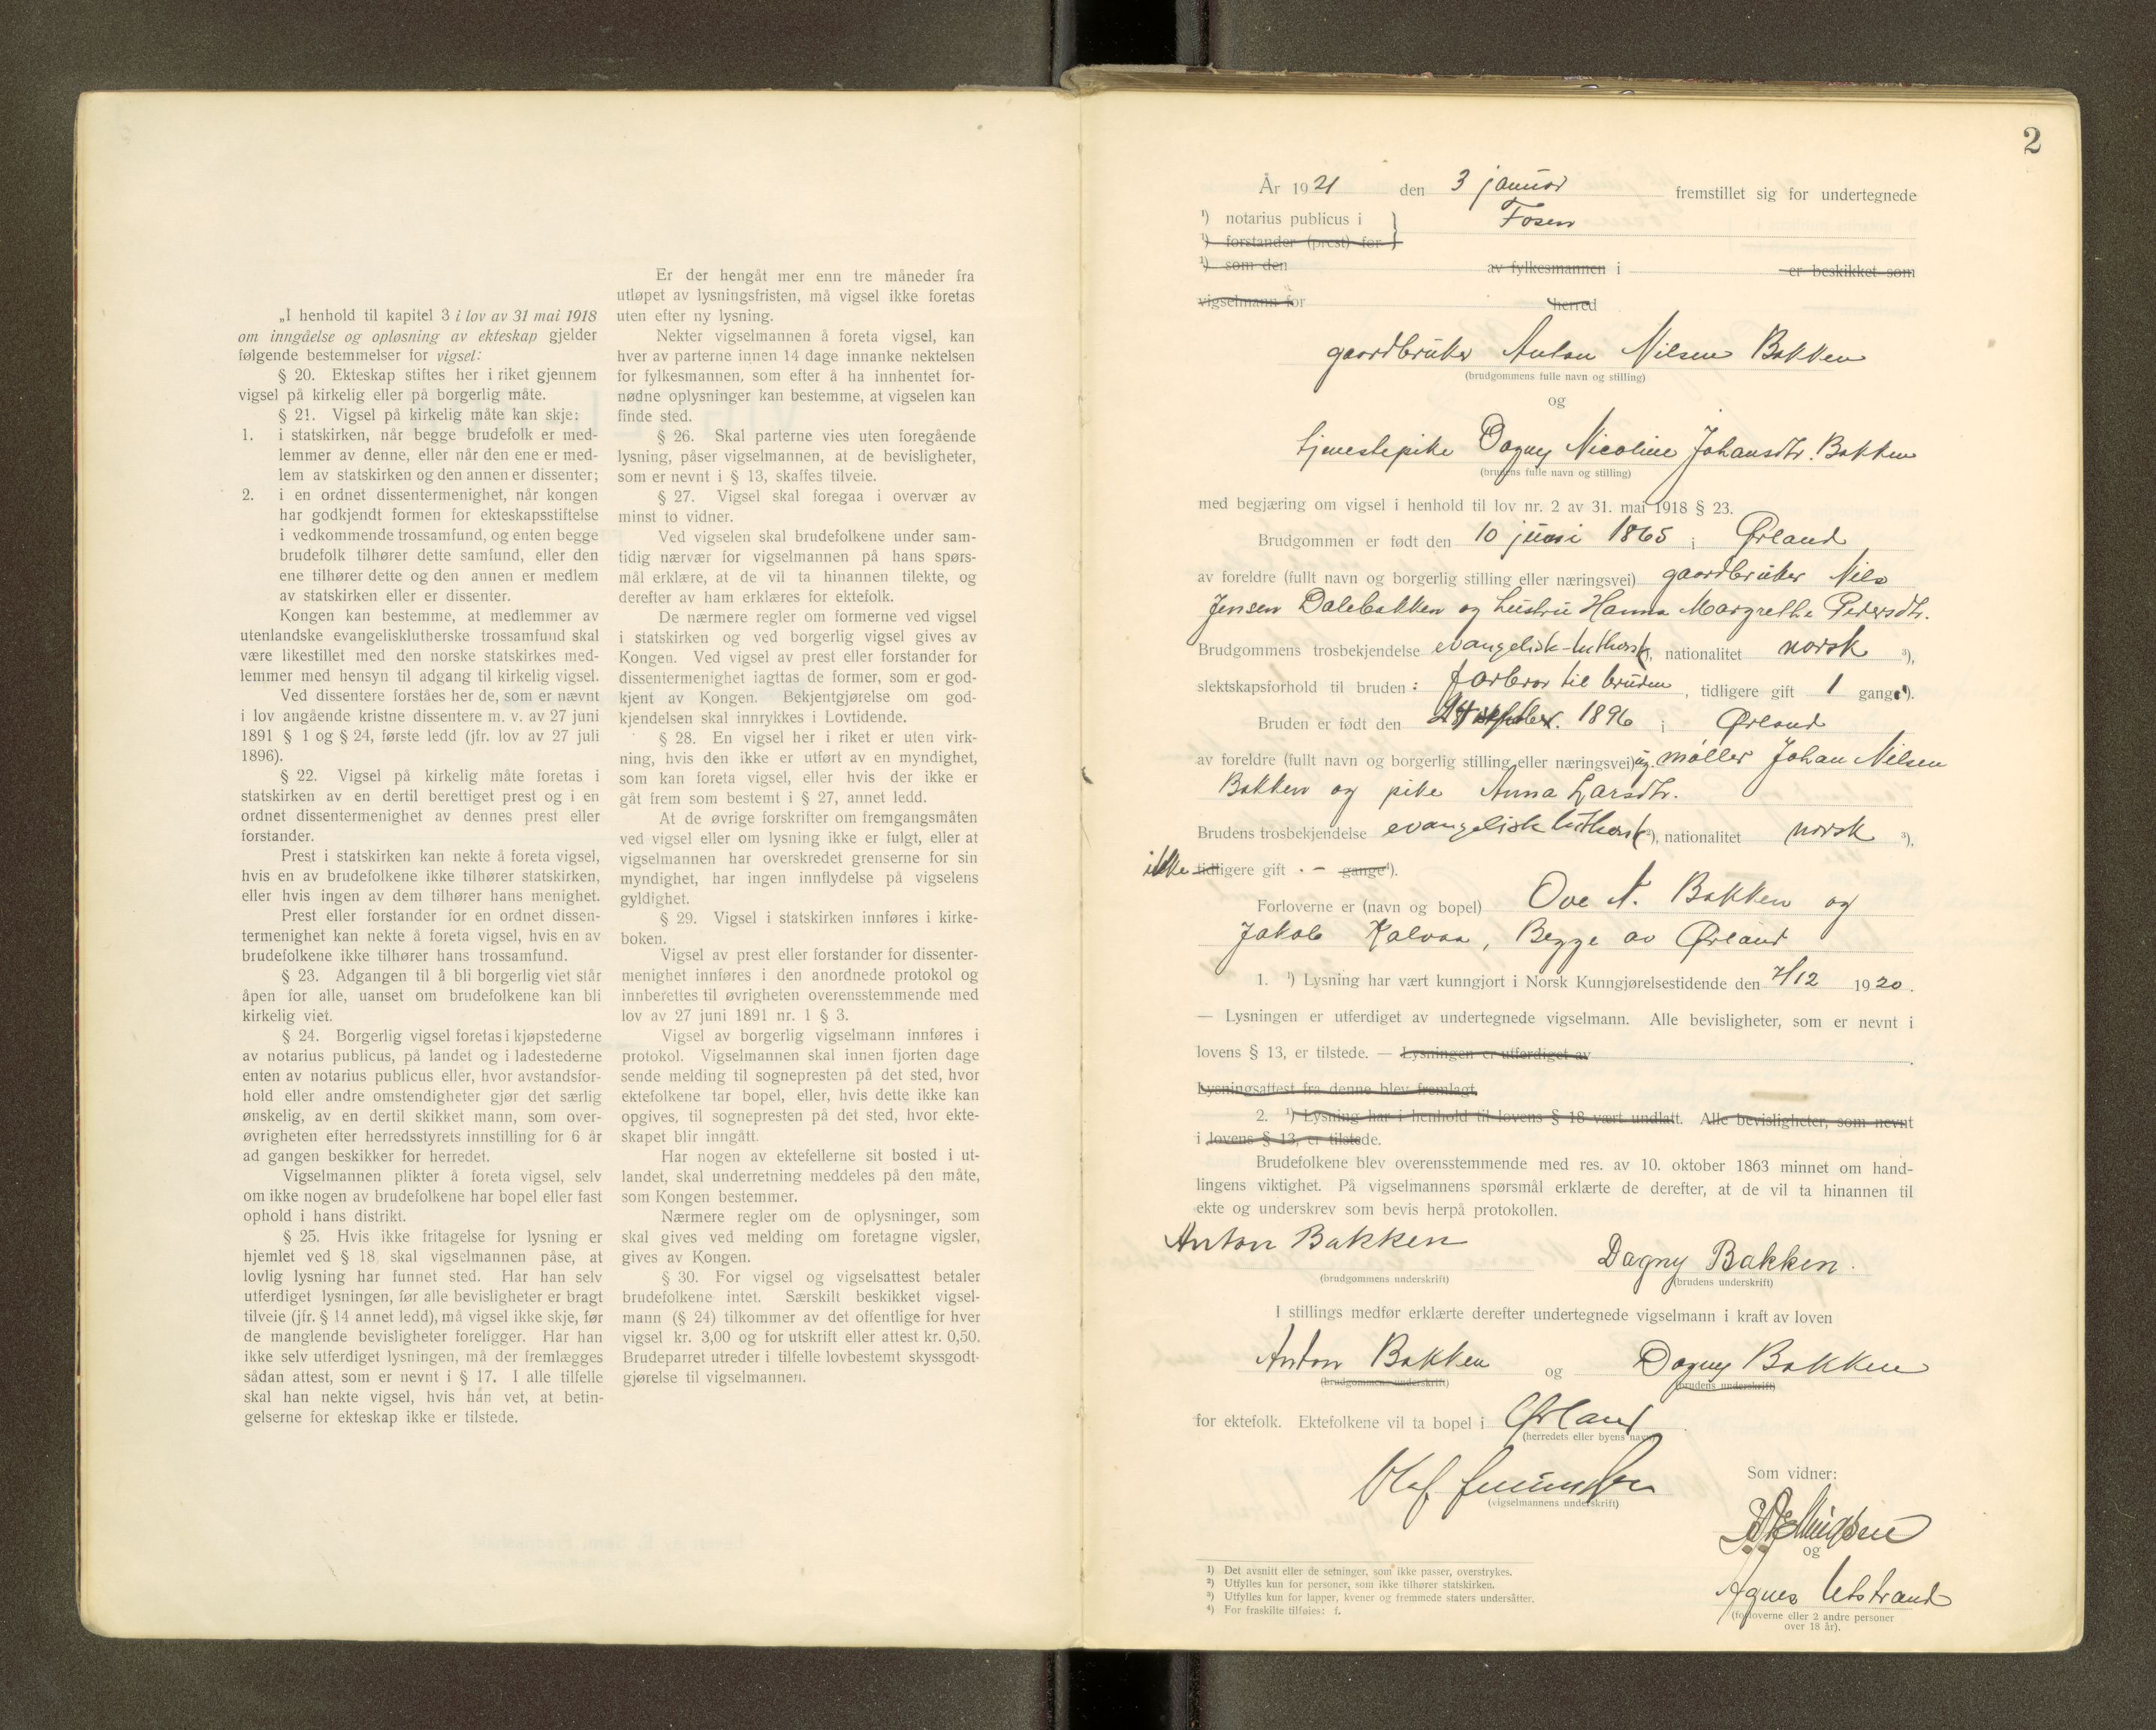 „I henhold til kapitel 3 i lov av 31 mai 1918
om inngåelse og opløsning av ekteskap gjelder
følgende bestemmelser for vigsel:
§ 20. Ekteskap stiftes her i riket gjennem
vigsel på kirkelig eller på borgerlig måte.
§ 21. Vigsel på kirkelig måte kan skje:
1. i statskirken, når begge brudefolk er med-
lemmer av denne, eller når den ene er med-
lem av statskirken og den annen er dissenter;
2. i en ordnet dissentermenighet, når kongen
har godkjendt formen for ekteskapsstiftelse
i vedkommende trossamfund, og enten begge
brudefolk tilhører dette samfund, eller den
ene tilhører dette og den annen er medlem
av statskirken eller er dissenter.
Kongen kan bestemme, at medlemmer av
utenlandske evangelisklutherske trossamfund skal
være likestillet med den norske statskirkes med-
lemmer med hensyn til adgang til kirkelig vigsel.
Ved dissentere forståes her de, som er nævnt
i lov angående kristne dissentere m. v. av 27 juni
1891 § 1 og § 24, første ledd (jfr. lov av 27 juli
1896).
§ 22. Vigsel på kirkelig måte foretas i
statskirken av en dertil berettiget prest og i en
ordnet dissentermenighet av dennes prest eller
forstander.
Prest i statskirken kan nekte å foreta vigsel,
hvis en av brudefolkene ikke tilhører statskirken,
eller hvis ingen av dem tilhører hans menighet.
Prest eller forstander for en ordnet dissen-
termenighet kan nekte å foreta vigsel, hvis en av
brudefolkene ikke tilhører hans trossamfund.
§ 23. Adgangen til å bli borgerlig viet står
åpen for alle, uanset om brudefolkene kan bli
kirkelig viet.
§ 24. Borgerlig vigsel foretas i kjøpstederne
av notarius publicus, på landet og i ladestederne
enten av notarius publicus eller, hvor avstandsfor-
hold eller andre omstendigheter gjør det særlig
ønskelig, av en dertil skikket mann, som over-
øvrigheten efter herredsstyrets innstilling for 6 år
ad gangen beskikker for herredet.
Vigselmannen plikter å foreta vigsel, selv
om ikke nogen av brudefolkene har bopel eller fast
ophold i hans distrikt.
§ 25. Hvis ikke fritagelse for lysning er
hjemlet ved § 18, skal vigselmannen påse, at
lovlig lysning har funnet sted. Har han selv
utferdiget lysningen, før alle bevisligheter er bragt
tilveie (jfr. § 14 annet ledd), må vigsel ikke skje, før
de manglende bevisligheter foreligger. Har han
ikke selv utferdiget lysningen, må der fremlægges
sådan attest, som er nevnt i § 17. I alle tilfelle
skal han nekte vigsel, hvis han vet, at betin-
gelserne for ekteskap ikke er tilstede.
Er der hengåt mer enn tre måneder fra
utløpet av lysningsfristen, må vigsel ikke foretas
uten efter ny lysning.
Nekter vigselmannen å foreta vigsel, kan
hver av parterne innen 14 dage innanke nektelsen
for fylkesmannen, som efter å ha innhentet for-
nødne oplysninger kan bestemme, at vigselen kan
finde sted.
§ 26. Skal parterne vies uten foregående
lysning, påser vigselmannen, at de bevisligheter,
som er nevnt i § 13, skaffes tilveie.
§ 27. Vigsel skal foregaa i overvær av
minst to vidner.
Ved vigselen skal brudefolkene under sam-
tidig nærvær for vigselmannen på hans spørs-
mål erklære, at de vil ta hinannen tilekte, og
derefter av ham erklæres for ektefolk.
De nærmere regler om formerne ved vigsel
i statskirken og ved borgerlig vigsel gives av
Kongen. Ved vigsel av prest eller forstander for
dissentermenighet iagttas de former, som er god-
kjent av Kongen. Bekjentgjørelse om god-
kjendelsen skal innrykkes i Lovtidende.
§ 28. En vigsel her i riket er uten virk-
ning, hvis den ikke er utført av en myndighet,
som kan foreta vigsel, eller hvis der ikke er
gåt frem som bestemt i § 27, annet ledd.
At de øvrige forskrifter om fremgangsmåten
ved vigsel eller om lysning ikke er fulgt, eller at
vigselmannen har overskredet grenserne for sin
myndighet, har ingen innflydelse på vigselens
gyldighet.
§ 29. Vigsel i statskirken innføres i kirke-
boken.
Vigsel av prest eller forstander for dissenter-
menighet innføres i den anordnede protokol og
innberettes til øvrigheten overensstemmende med
lov av 27 juni 1891 nr. 1 § 3.
Vigsel av borgerlig vigselmann innføres i
protokol. Vigselmannen skal innen fjorten dage
sende melding til sognepresten på det sted, hvor
ektefolkene tar bopel, eller, hvis dette ikke kan
opgives, til sognepresten på det sted, hvor ekte-
skapet blir inngått.
Har nogen av ektefellerne sit bosted i ut-
landet, skal underretning meddeles på den måte,
som Kongen bestemmer.
Nærmere regler om de oplysninger, som
skal gives ved melding om foretagne vigsler,
gives av Kongen.
§ 30. For vigsel og vigselsattest betaler
brudefolkene intet. Særskilt beskikket vigsel-
mann (§ 24) tilkommer av det offentlige for hver
vigsel kr. 3,00 og for utskrift eller attest kr. 0,50.
Brudeparret utreder i tilfelle lovbestemt skyssgodt-
gjørelse til vigselmannen.
2
År 1921 den 3 januar fremstillet sig for undertegnede
¹) notarius publicus i Fosen
¹) forstander (prest) for
¹) som den av fylkesmannen i er beskikket som
vigselmann for herred
gaardbruker Anton Nilsen Bakken
(brudgommens fulle navn og stilling)
og
tjenestepike Dagny Nicoline Johansdtr. Bakken
(brudens fulle navn og stilling)
med begjæring om vigsel i henhold til lov nr. 2 av 31. mai 1918 § 23.
Brudgommen er født den 10 juni 1865 i Ørland
av foreldre (fullt navn og borgerlig stilling eller næringsvei) gaardbruker Nils
Jensen Dalebakken og hustru Hanna Margrethe Pedersdtr.
Brudgommens trosbekjendelse evangelisk-luthersk ²), nationalitet norsk ³),
slektskapsforhold til bruden: farbror til bruden, tidligere gift 1 gang ⁴).
Bruden er født den 1896 i Ørland
av foreldre (fullt navn og borgerlig stilling eller næringsvei) ug. møller Johan Nilsen
Bakken og pike Anna Larsdtr.
Brudens trosbekjendelse evangelisk luthersk ²), nationalitet norsk ³),
ikke tidligere gift - gange ⁴).
Forloverne er (navn og bopel) Ove A. Bakken og
Jakob Kalvaa, Begge av Ørland
1. ¹) Lysning har vært kunngjort i Norsk Kunngjørelsestidende den 7/12 1920.
— Lysningen er utferdiget av undertegnede vigselmann. Alle bevisligheter, som er nevnt i
lovens § 13, er tilstede. — Lysningen er utferdiget av
Lysningsattest fra denne blev fremlagt.
2. ¹) Lysning har i henhold til lovens § 18 vært undlatt. Alle bevisligheter, som nevnt
i lovens § 13, er tilstede.
Brudefolkene blev overensstemmende med res. av 10. oktober 1863 minnet om hand-
lingens viktighet. På vigselmannens spørsmål erklærte de derefter, at de vil ta hinannen til
ekte og underskrev som bevis herpå protokollen.
Anton Bakken Dagny Bakken.
(brudgommens underskrift) (brudens underskrift)
I stillings medfør erklærte derefter undertegnede vigselmann i kraft av loven
Anton Bakken og Dagny Bakken
(brudgommens underskrift) (brudens underskrift)
for ektefolk. Ektefolkene vil ta bopel i Ørland
(herredets eller byens navn)
Olaf
(vigselmannens underskrift)
Som vidner:
og
Agnes Utstrand
(forloverne eller 2 andre personer
over 18 år).
¹) Det avsnitt eller de setninger, som ikke passer, overstrykes.
²) Utfylles kun for personer, som ikke tilhører statskirken.
³) Utfylles kun for lapper, kvener og fremmede staters undersåtter.
⁴) For fraskilte tilføies: f.